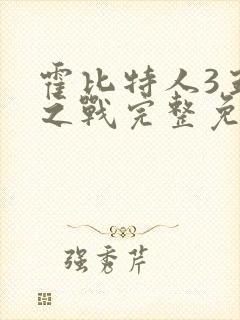 霍比特人3
之戰完整免
强秀芹